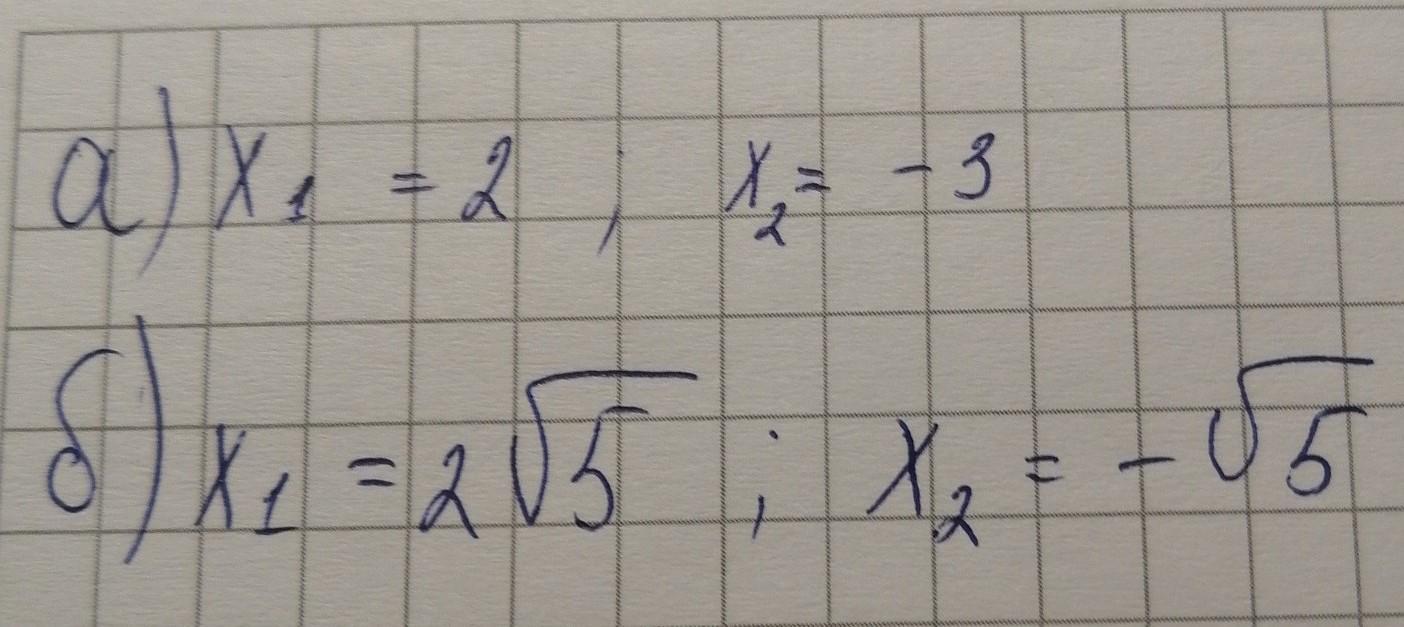 а) x₁ = 2 ; x₂ = - 3
б) x₁ = 2√5 ; x₂ = - √5